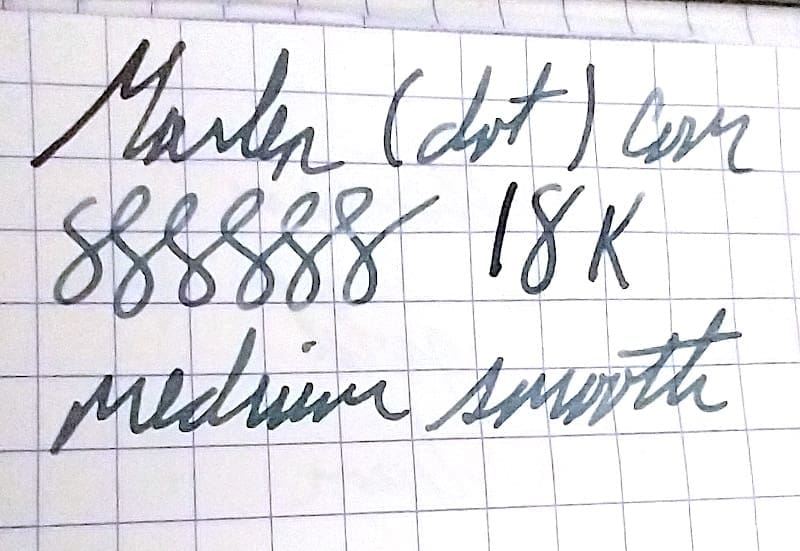 Marlen (dot) Com
888888 18K
medium smooth